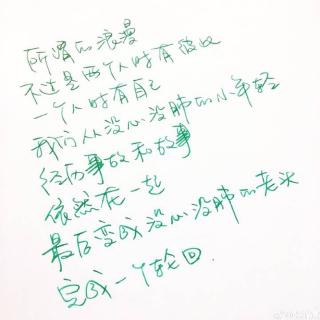 所谓的浪漫
不过是两个人时有彼此
一个人时有自己
我们从没心没肺的小年轻
经历事故和故事
依然在一起
最后变成没心没肺的老头
完成一个轮回